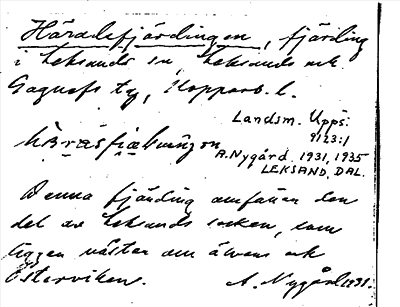 Häradsfjärdingen, fjärding
i Leksands sn Leksands och
Gagnefs tg, Kopparb. l.
Landsm. Upps.
9123:1
A. Nygård. 1931, 1935
LEKSAND, DAL.
Denna fjärding omfattar den
del av Leksands socken, som
ligger väster om älven och
Österviken. A. Nygård 1931.